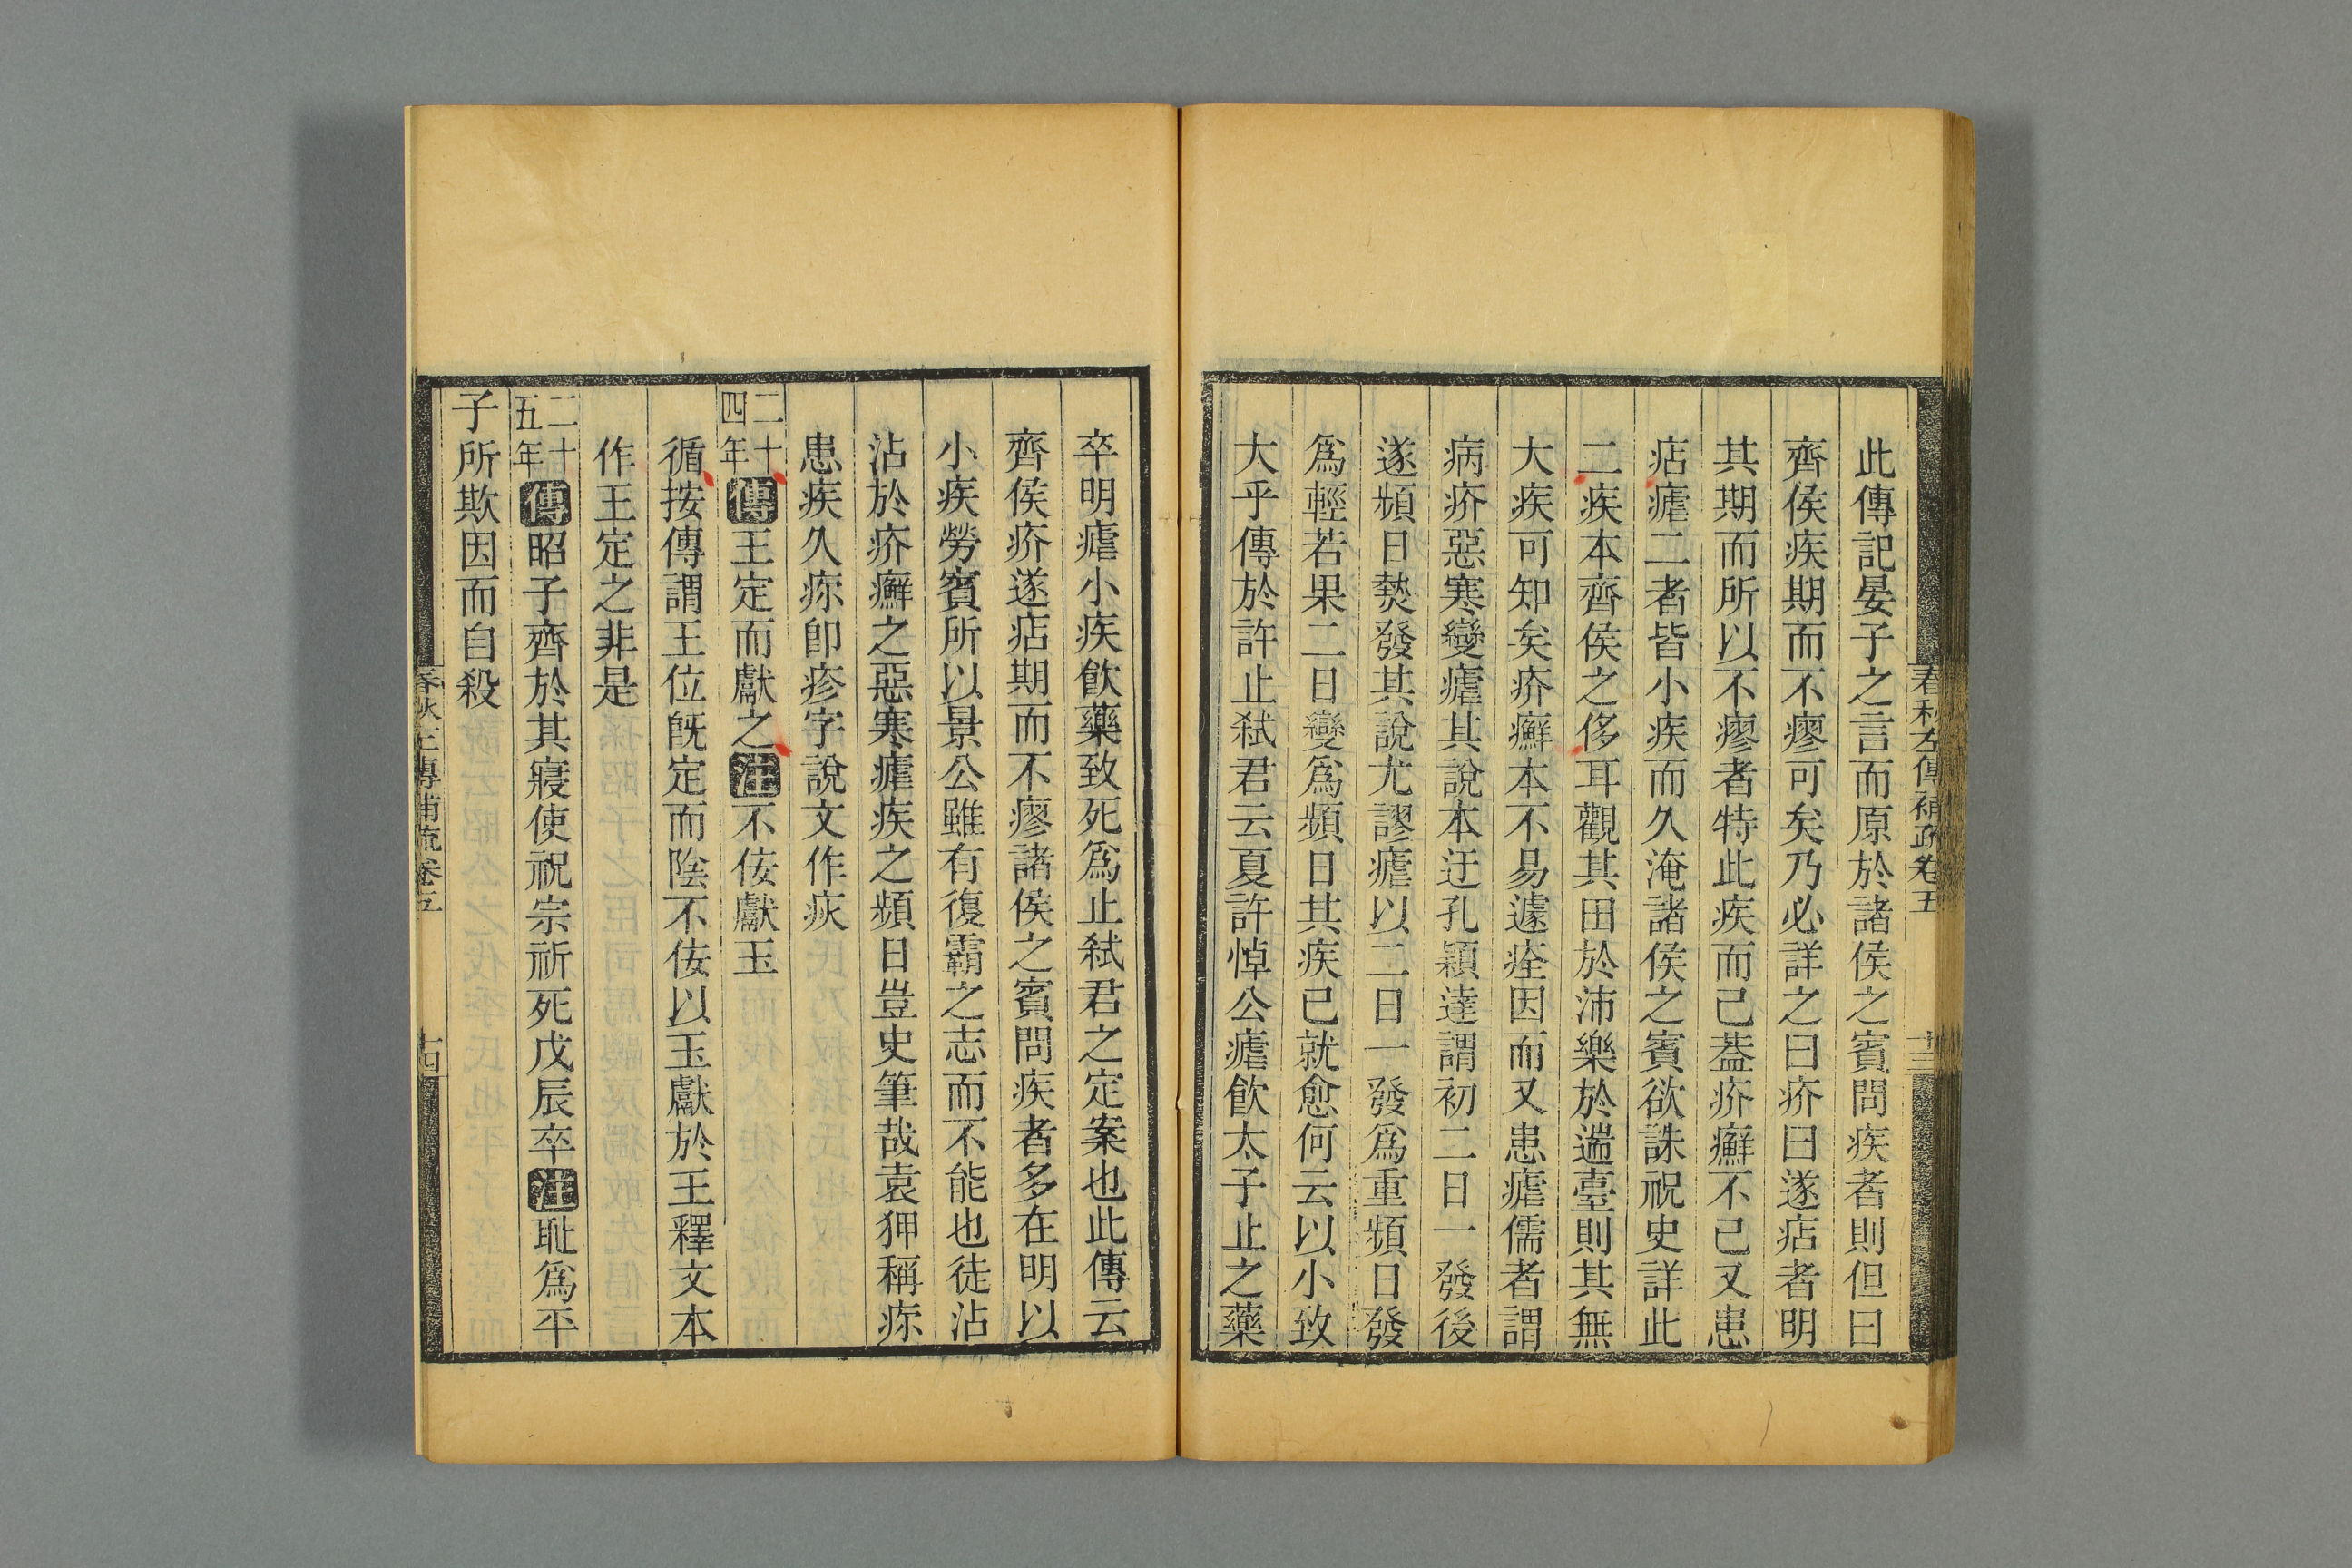 春秋左傳補疏卷五
十三
此傳記晏子之言而原於諸侯之賓問疾者則但曰
齊侯疾期而不瘳可矣乃必詳之曰疥曰遂痁者明
其期而所以不瘳者特此疾而己葢疥癬不已又患
痁瘧二者皆小疾而久淹諸侯之賓欲誅祝史詳此
二疾本齊侯之侈耳觀其田於沛樂於遄臺則其無
大疾可知矣疥癬本不易遽痊因而又患瘧儒者謂
病疥惡寒變瘧其說本迂孔穎達謂初二日一發後
遂頻日𤍠發其說尤謬瘧以二日一發爲重頻日發
爲輕若果二日變爲頻日其疾已就愈何云以小致
大乎傳於許止弑君云夏許悼公瘧飮太子止之藥
卒明瘧小疾飮藥致死爲止弑君之定案也此傳云
齊侯疥遂痁期而不瘳諸侯之賓問疾者多在明以
小疾勞賓所以景公雖有復霸之志而不能也徒沾
沾於疥癬之惡寒瘧疾之頻日豈史筆哉袁狎稱疢
患疾久疢卽疹字說文作疢
二十四年傳王定而獻之注不佞獻玉
循按傳謂王位旣定而陰不佞以玉獻於王釋文本
作王定之非是
二十五年傳昭子齊於其寢使祝宗祈死戊辰卒注耻爲平
子所欺因而自殺
春秋左傳補疏卷五
十四